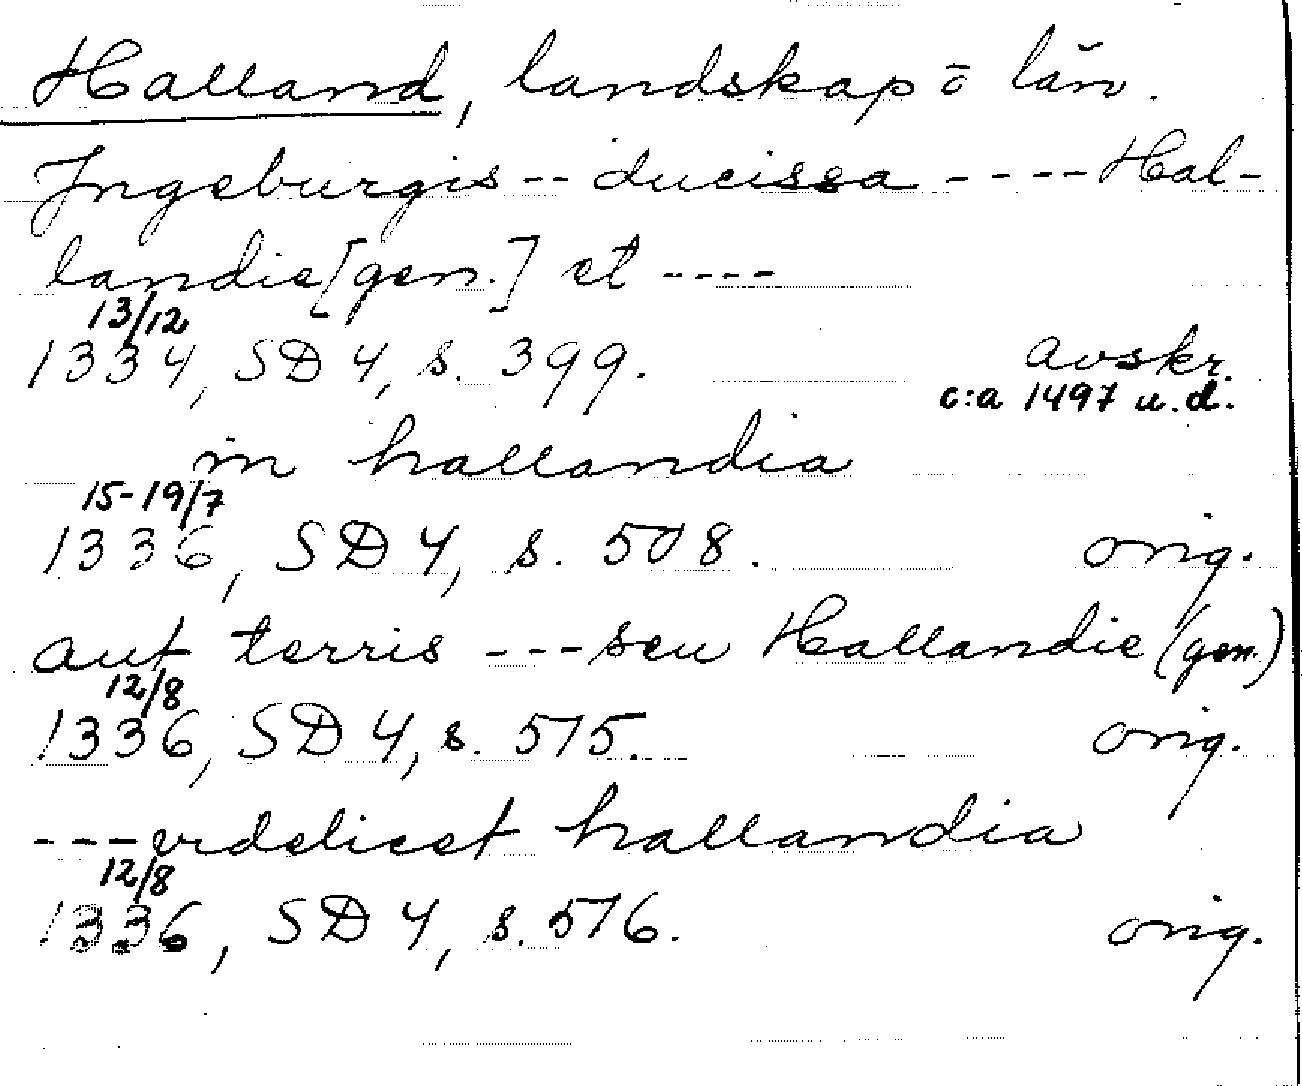 Halland, landskap ō län.
Ingeburgis -- ducissa ---- Hal-
landie [gen.] et ----
13/12
1334, SD 4, s. 399. avskr.
c:a 1497 u.d.
in hallandia
15-19/7
1336, SD 4, s. 508. orig.
aut terris --- seu Hallandie (gen.)
12/8
1336, SD 4, s. 515. orig.
--- videlicet hallandia
12/8
1336, SD 4, s. 516. orig.